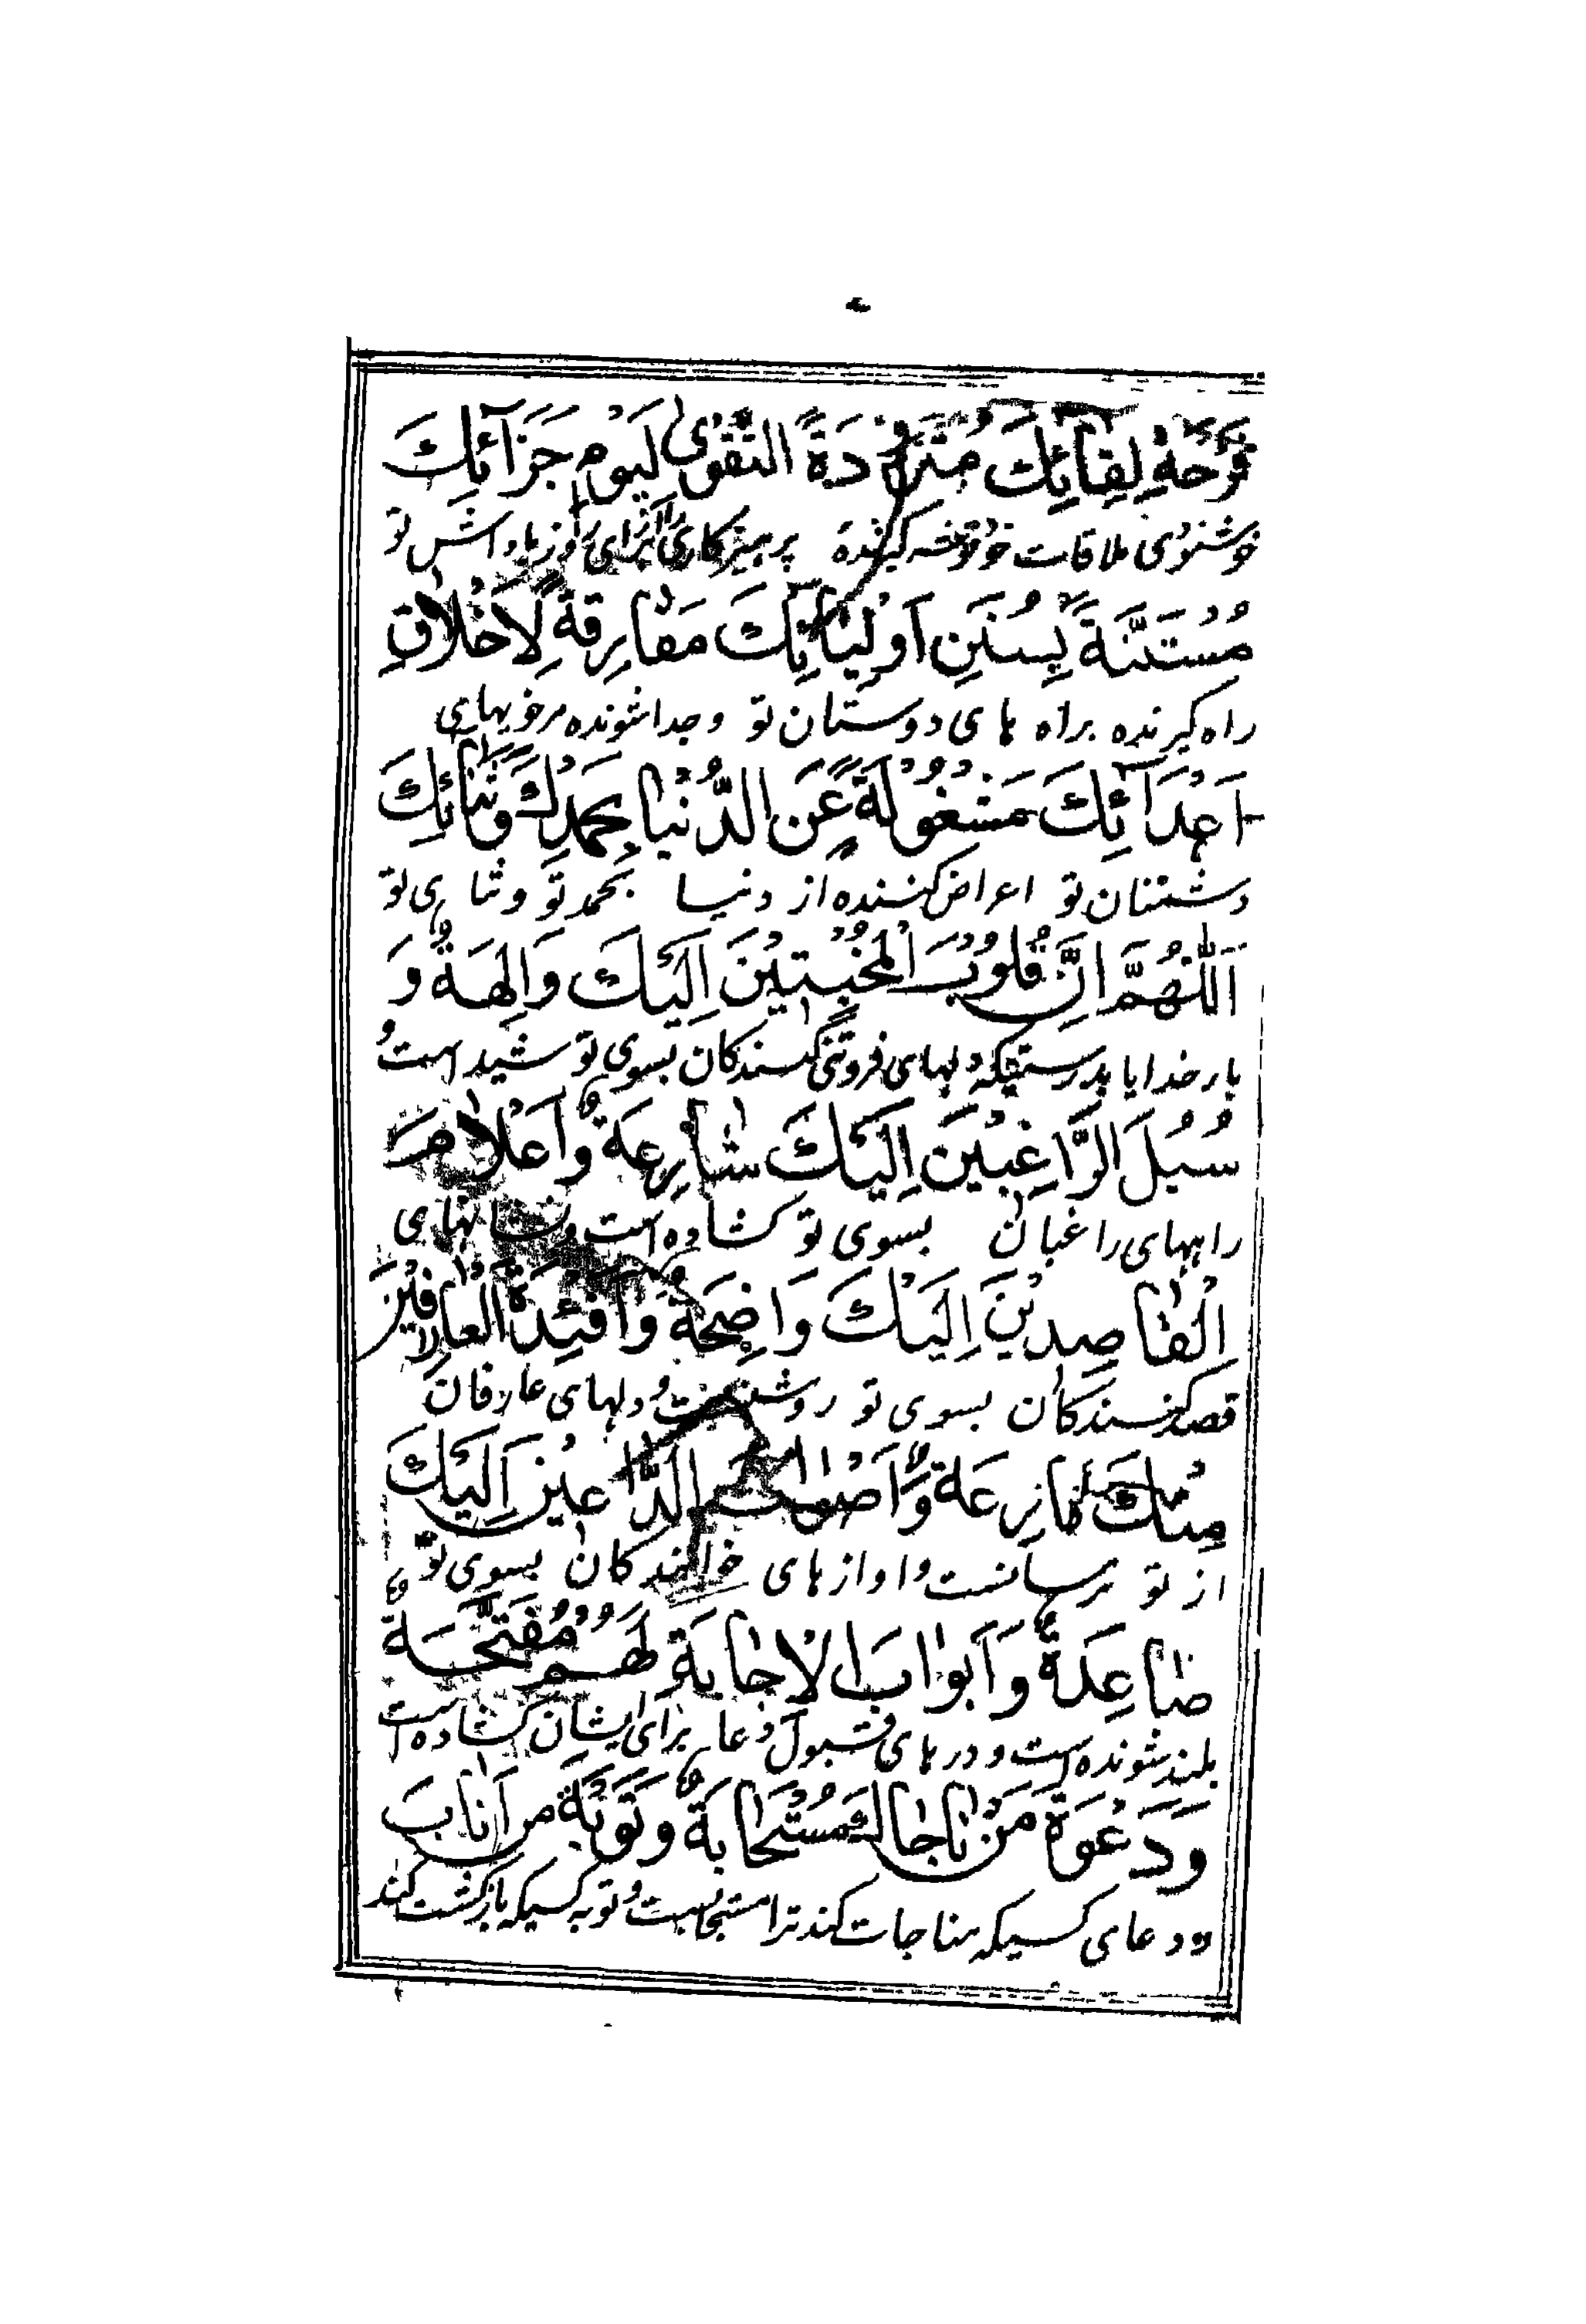 فَرْحَةِ لِقَائِكَ مُتَزَوِّدَةً التَّقْوٰى لِيَوْمِ جَزَآئِكَ
خوشنودی ملاقات خود توشه گیرنده پرهیزکاری را برای روز پاداش تو
مُسْتَنَّةً بِسُنَنِ اَوْلِيَائِكَ مُفَارِقَةً لِاَخْلَاقِ
راه گیرنده براه های دوستان تو و جدا شونده مر خویهای
اَعْدَائِكَ مَشْغُوْلَةً عَنِ الدُّنْيَا بِحَمْدِكَ وَثَنَائِكَ
دشمنان تو اعراض کننده از دنیا بحمد تو و ثنای تو
اَللّٰهُمَّ اِنَّ قُلُوْبَ الْمُخْبِتِيْنَ اِلَيْكَ وَالِهَةٌ وَ
بار خدایا بدرستیکه دلهای فروتنی کنندکان بسوی تو شیداست و
سُبُلَ الرَّاغِبِيْنَ اِلَيْكَ شَارِعَةٌ وَاَعْلَامَ
راههای راغبان بسوی تو کشاده است و نشانهای
الْقَاصِدِيْنَ اِلَيْكَ وَاضِحَةٌ وَاَفْئِدَةَ الْعَارِفِيْنَ
قصد کنندکان بسوی تو روشنست و دلهای عارفان
مِنْكَ فَازِعَةٌ وَاَصْوَاتَ الدَّاعِيْنَ اِلَيْكَ
از تو ترسانست و اوازهای خوانندکان بسوی تو
صَاعِدَةٌ وَاَبْوَابَ الْاِجَابَةِ لَهُمْ مُفَتَّحَةٌ
بلند شونده است و درهای قبول دعا برای ایشان کشاده است
وَدَعْوَةَ مَنْ نَاجَاكَ مُسْتَجَابَةٌ وَتَوْبَةَ مَنْ اَنَابَ
و دعای کسیکه مناجات کند ترا مستجابست و توبه کسیکه بازکشت کند